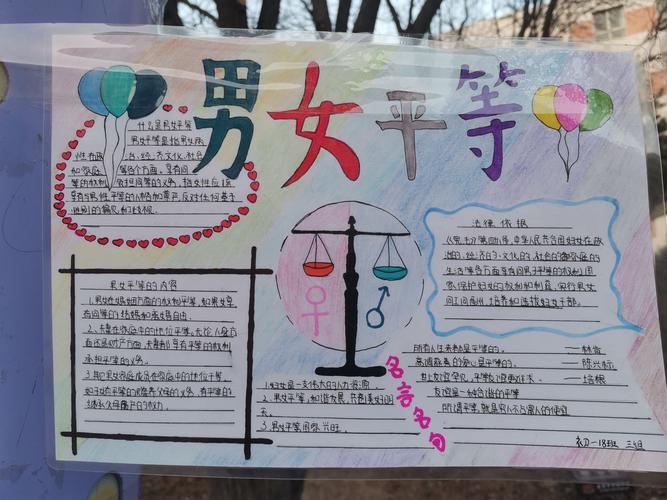 男女平等
什么是男女平等
男女平等是指男女两
性在政治、经济文化、社会
和家庭等各个方面，享有同
等的权利，负担同等的义务，指女性应该
享有与男性平等的人格和尊严，反对任何基于
性别的偏见和歧视。
法律依据
《宪法》第四十八条，中华人民共和国妇女在政
治的、经济的、文化的、社会的和家庭的
生活等各方面享有同男子平等的权利，国
家保护妇女的权利和利益，实行男女
同工同酬，培养和选拔妇女干部。
男女平等的内容
1.男女在婚姻方面的权利平等，如男女享
有同等的结婚和离婚自由。
2、夫妻在家庭中的地位平等，无论人身方
面还是财产方面，夫妻都享有平等的权利
承担平等的义务。
3.其它男女家庭成员在家庭中的地位平等，
如子女在平等的赡养父母的义务，有平等的
继承父母遗产的权力。
1.妇女是一支伟大的人力资源
2、男女平等，和谐发展，共创美好明
天。
3.男女平等国家兴旺。
名言名句
所有人生来都是平等的。——林肯
——陈兴标
——培根
友谊是一种和谐的平等
初一18班